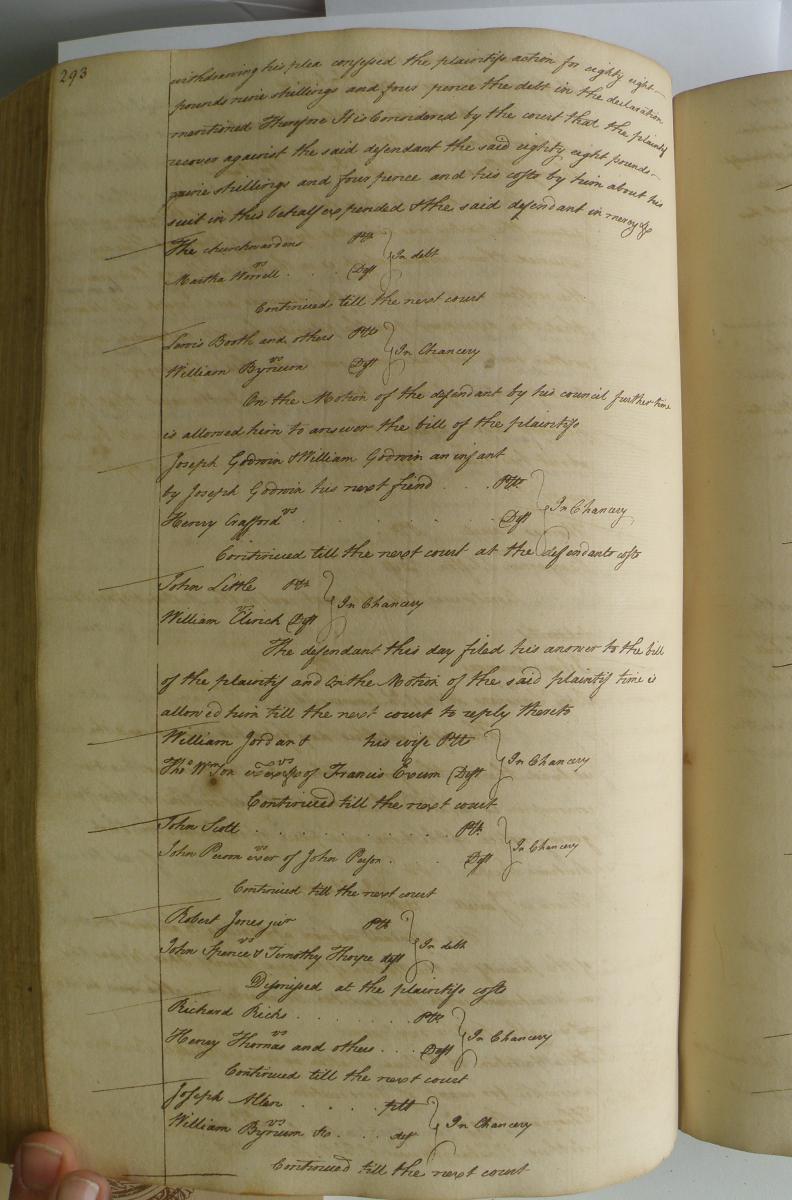 293
withdrawing his plea confessed the plaintifs action for eighty eight
pounds nine shillings and four pence the debt in the declaration
mentioned Therefore It is Considered by the court that the plaintif
recover against the said defendant the said eighty eight pounds
nine shillings and four pence and his costs by him about his
suit in this behalf expended & the said defendant in mercy &c
The churchwardens Plts
vs In debt
Martha Worrell . . . Deft
Continued till the next court
Lewis Booth and others Plts
vs In Chancery
William Bynum Deft
On the Motion of the defendant by his council further time
is allowed him to answer the bill of the plaintifs
Joseph Godwin & William Godwin an infant
by Joseph Godwin his next fiend . . . Plts
vs In Chancery
Henry Crafford . . . . . . . Deft
Continued till the next court at the defendants costs
John Little Plt
vs In Chancery
William Deft
The defendant this day filed his answer to the bill
of the plaintif and On the Motion of the said plaintif time is
allowed him till the next court to reply thereto
William Jordan & his wife Plts
vs In Chancery
Thos of Francis Exum Deft
Continued till the next court
John Scott . . . . . . . . . . Plt
vs In Chancery
John Person exer of John Person . . . Deft
Continued till the next court
Robert Jones junr Plt
vs In debt
John Spence & Timothy Thorpe deft
Dismissed at the plaintifs costs
Richard Ricks . . . . . . Plt
vs In Chancery
Henry Thomas and others . . . Deft
Continued till the next court
Joseph Allen . . . . plt
vs In Chancery
William Bynum . . . deft
Continued till the next court